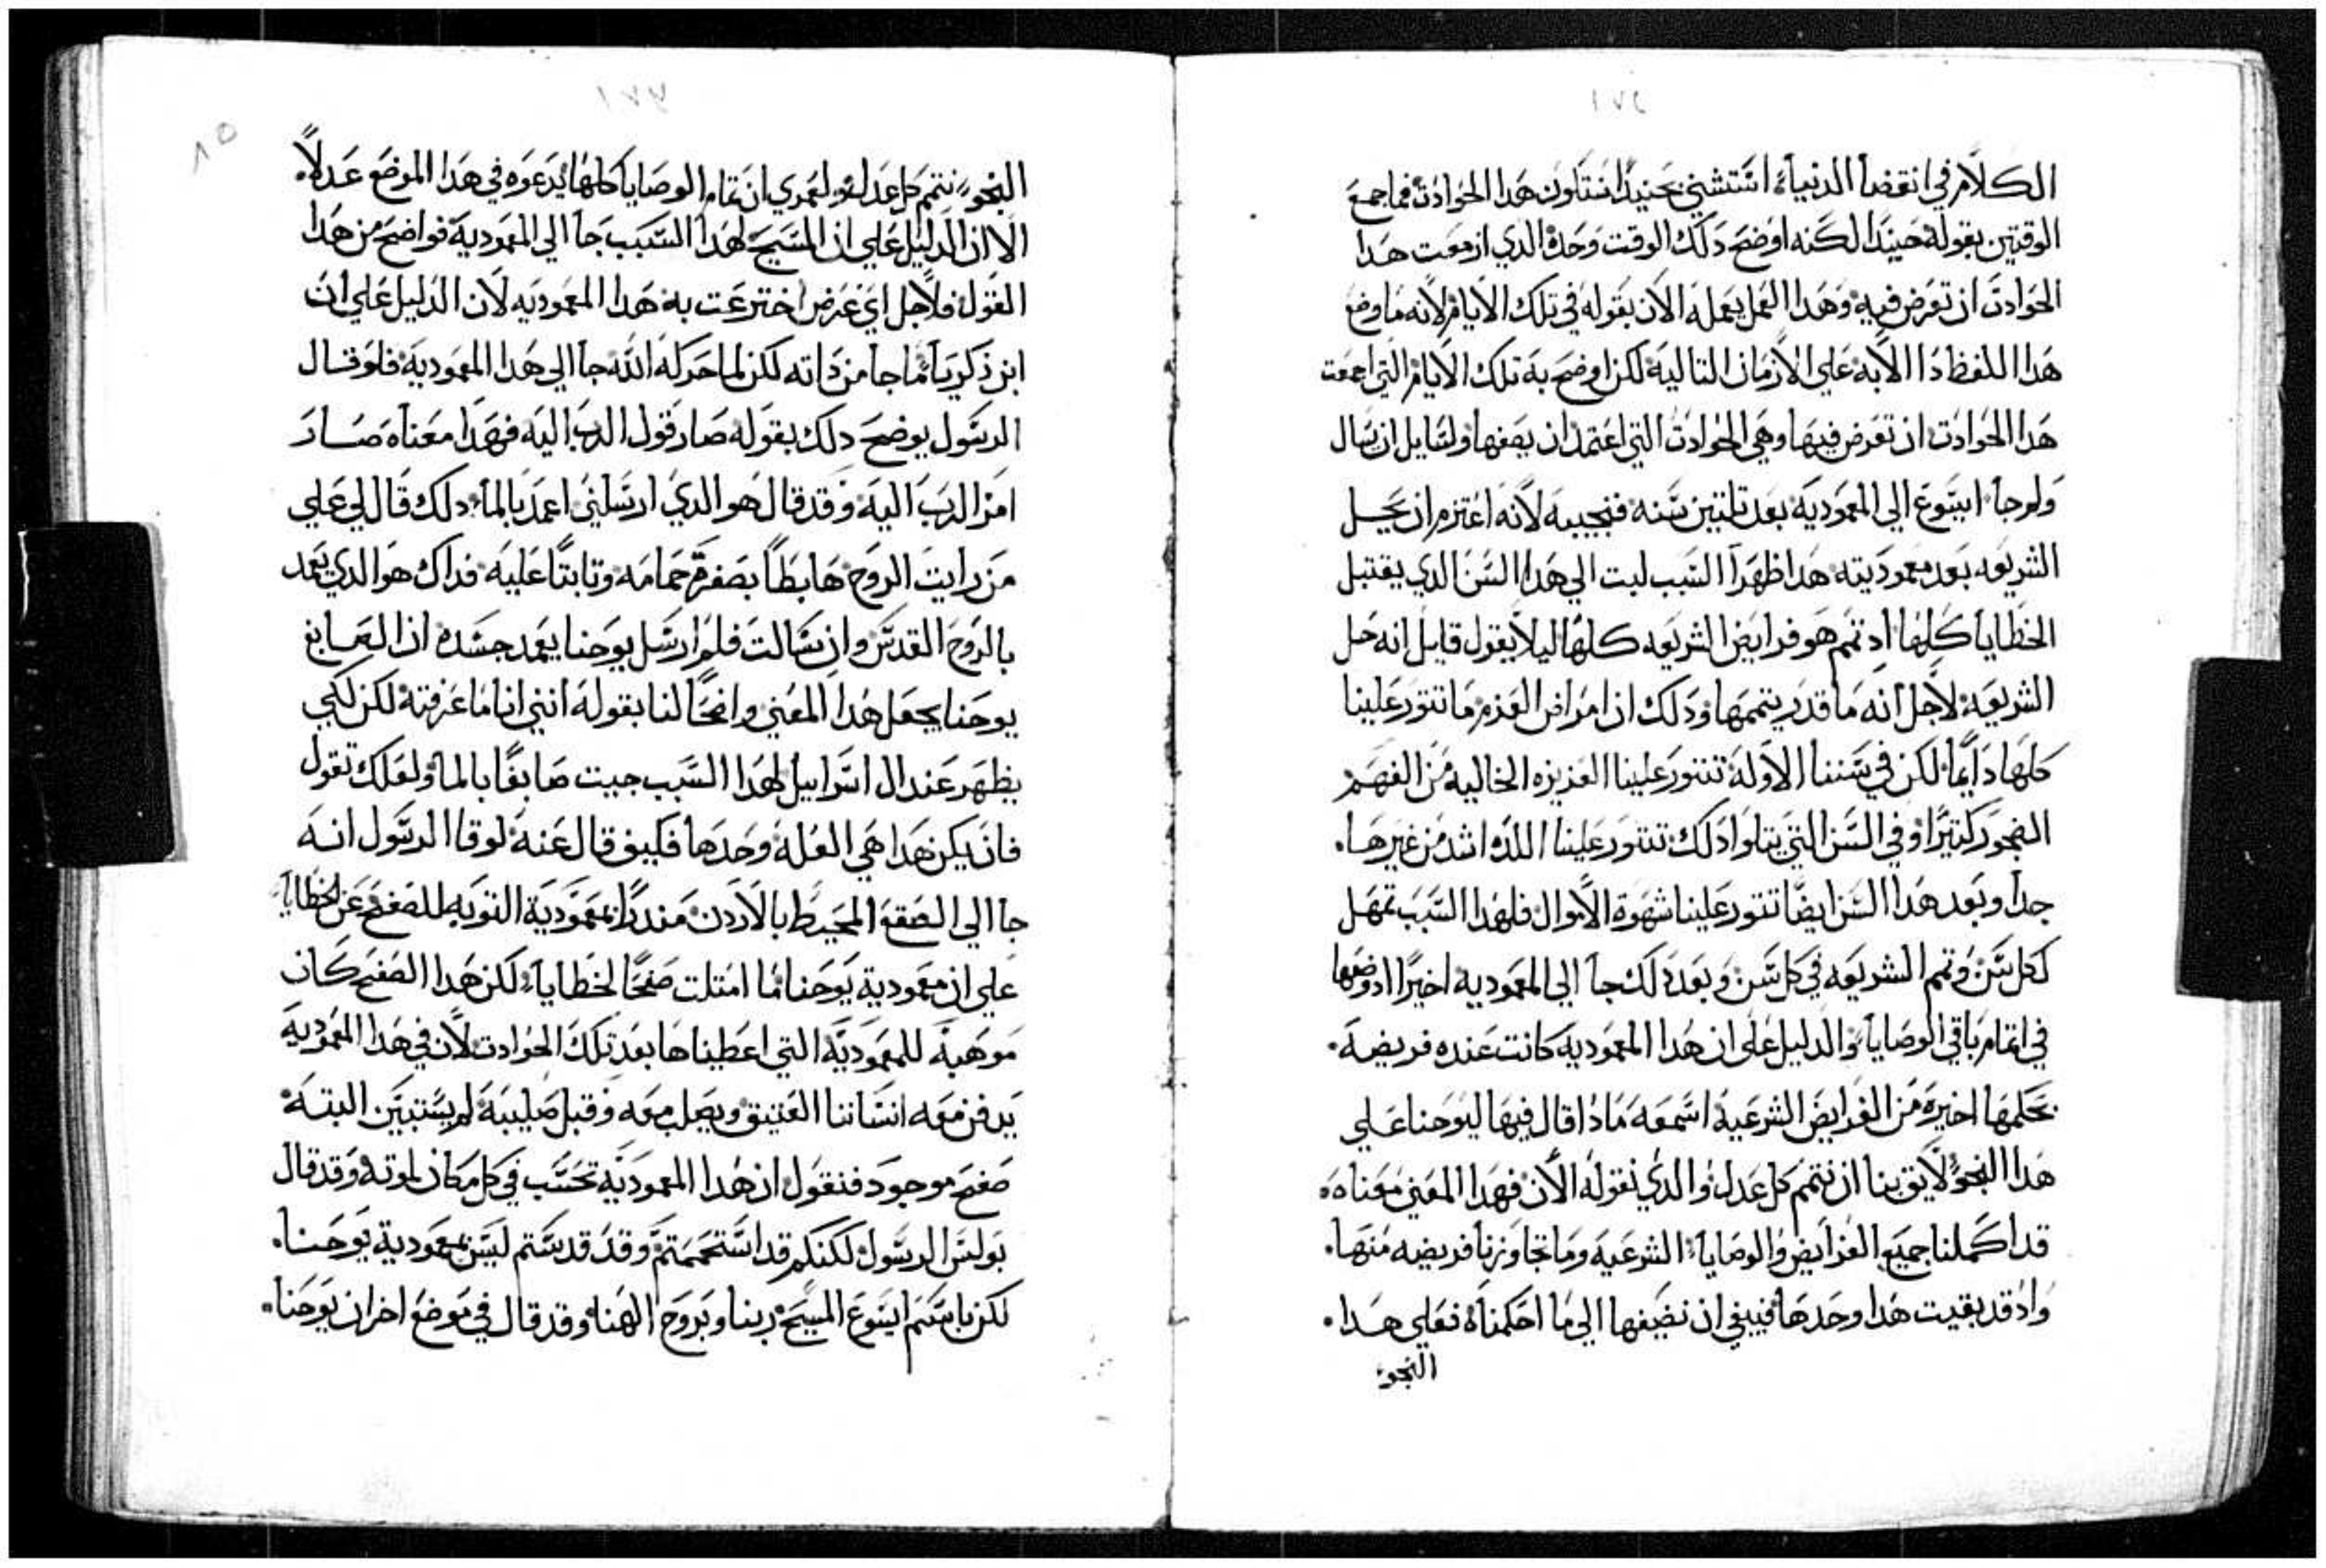 ١٧٢
الكلام في انقضا الدنيا استشني بحنيدا انتلون هدا الحوادت فما جمع
الوقتين بقوله حينيدا لكنه اوضح دلك الوقت وحده الدي ازمعت هدا
الحوادت ان تعرض فيه وهدا العمل يعمله الان بقوله في تلك الايام لانه ما وضع
هدا اللفظ دالا به علي الازمان التاليه لكن اوضح به تلك الايام التي اجمعت
هدا الحوادت ان تعرض فيها وهي الحوادت التي اعتمد ان يصفها ولسايل ان يسال
ولم جا ايسوع الي المعموديه بعد تلتين سنه فنجيبه لانه اعتزم ان يحل
الشريعه بعد معموديته هدا ظهرا السبب لبت الي هدا السن الدي يقتبل
الخطايا كلها اد تمم هو فرايض الشريعه كلها ليلا يقول قايل انه حل
الشريعه لاجل انه ما قدر يتممها ودلك ان امراض العزم ما تتور علينا
كلها دايما لكن في سننا الاوله تتور علينا الغزيزه الخاليه من الفهم
الفجور كتيرا وفي السن التي يتلوا دلك تتور علينا اللده اشد من غيرها
جدا وبعد هدا السن ايضا تتور علينا شهوة الاموال فلهدا السبب تمهل
لكل سن وتمم الشريعه في كل سن وبعد دلك جا الي المعموديه اخيرا اد وضعها
في اتمام باقي الوصايا والدليل علي ان هدا المعموديه كانت عنده فريضه
بحكمها اخيره من الفرايض الشرعيه اسمعه مادا قال فيها ليوحنا علي
هدا النحو لايق بنا ان نتمم كل عدل والدي نقوله الان فهدا المعني معناه
قد اكملنا جميع الفرايض والوصايا الشرعيه وما تجاوزنا فريضه منها
واد قد بقيت هدا وحدها فينبغي ان نضيفها الي ما احكمناه فعلي هدا
النحو
١٧٣
٨٥
النحو نتمم كل عدل ولعمري ان تمام الوصايا كلها يدعوه في هدا الموضع عدلا
الا ان الدليل علي ان المسيح لهدا السبب جا الي المعموديه فواضح من هدا
القول فلاجل اي غرض اخترعت به هدا المعموديه لان الدليل علي ان
ابن زكريا ما جا من داته لكن لما حركه الله جا الي هدا المعموديه فلوقا
الرسول يوضح دلك بقوله صار قول الرب اليه فهدا معناه صار
امر الرب اليه وقد قال هو الدي ارسلني اعمد بالما دلك قال لي علي
من رايت الروح هابطا بصفة حمامه وتابتا عليه فداك هو الدي يعمد
بالروح القدس وان سالت فلم ارسل يوحنا يعمد جسده ان الصابغ
يوحنا يجعل هدا المعني واضحا لنا بقوله انني انا ما عرفته لكن لكي
يظهر عند ال اسراييل لهدا السبب جيت صابغا بالما ولعلك تقول
فان يكن هدا هي العله وحدها فكيف قال عنه لوقا الرسول انه
جا الي الصقع المحيط بالاردن مندرا بمعمودية التوبه للصفح عن الخطايا
علي ان معمودية يوحنا ما امتلت صفحا لخطايا لكن هدا الصفح كان
موهبة للمعموديه التي اعطيناها بعد تلك الحوادت لان في هدا المعموديه
يدفن معه انساننا العتيق ويصلب معه وقبل صليبه لم يستبين البته
صفح موجود فنقول ان هدا المعموديه تحسب في كل مكان لموته وقد قال
بولس الرسول لكنكم قد استحممتم وقد قدستم ليس بمعمودية يوحنا
لكن باسم ايسوع المسيح ربنا وبروح الهنا وقد قال في موضع اخر ان يوحنا